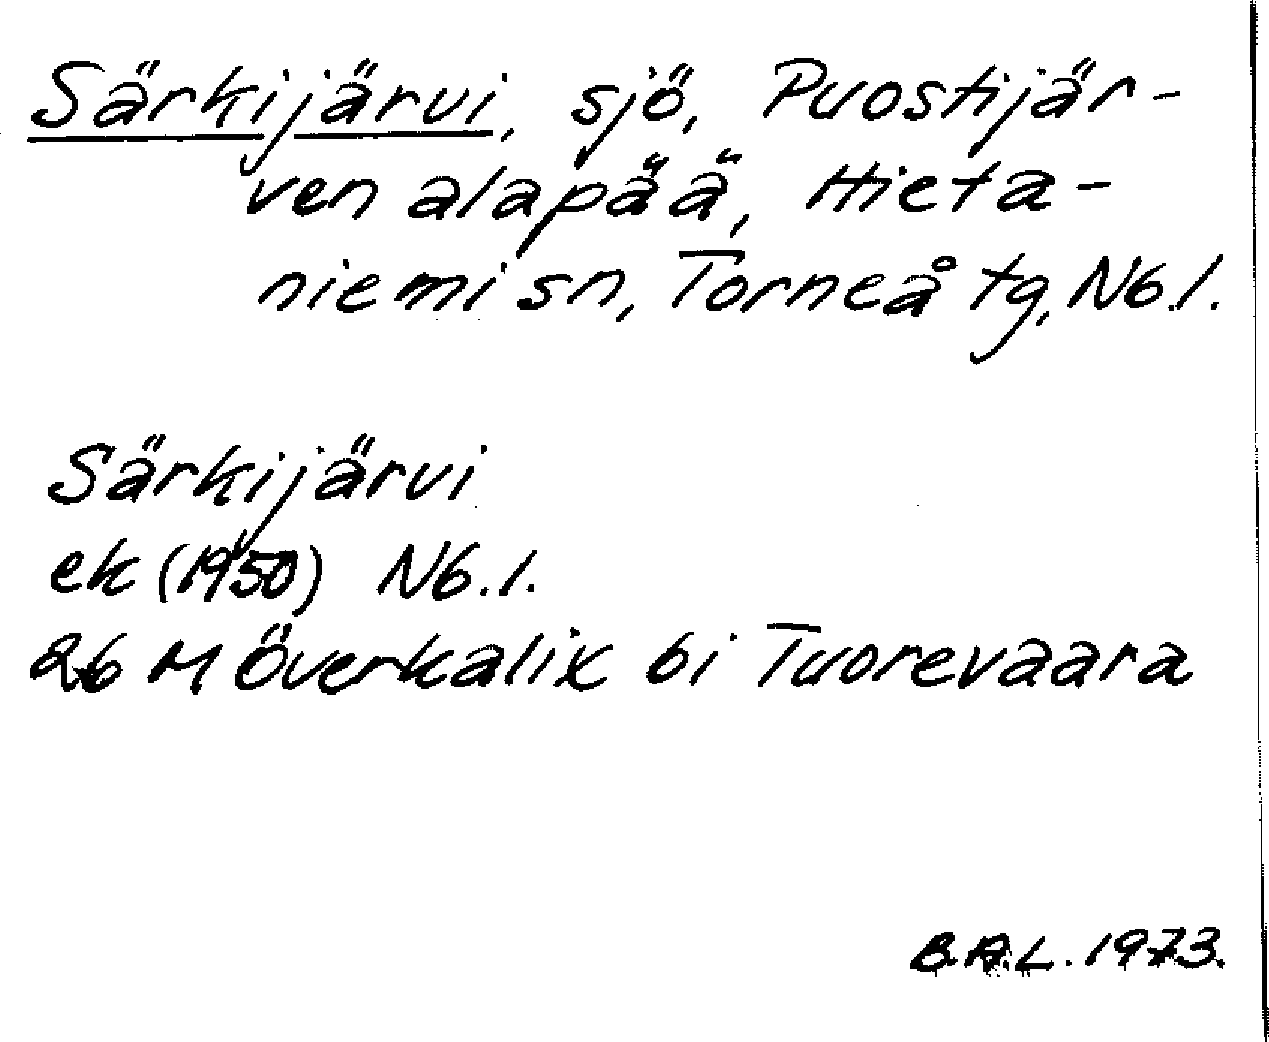 Särkijärvi, sjö, Puostijär-
ven alapää, Hieta-
niemi sn, Torneå tg, Nb.l.
Särkijärvi
ek (1950) Nb.l.
26 M Överkalix 6i Tuorevaara
B.A.L. 1973.